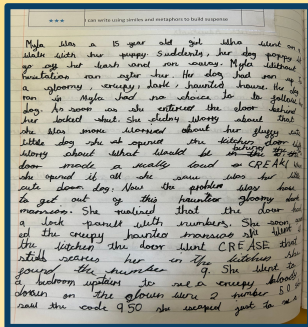 I can write using similes and metaphors to build suspense
Myla was a 15 year old girl who went on
walk with her puppy. Suddenly, her dog poppy
go off her leash and ran away. Myla without
hesitation ran after her. Her dog had ran
a gloomy, creepy, dark, haunted house. Her dog
ran in Myla had no choice to to follow
dog. As soon as she entered the door behind
her locked shut. She didn't worry about that
she was more worried about her fluffy
little dog she opened the kitchen door
worry about what would be in behind the
door made a really loud CREAK
she opened it all she saw was her
cute down dog. Now the problem was how
to get out of this haunted gloomy
mansion. She realised that the door
a lock panel with numbers. She soon
ed the creepy haunted mansion she went
the kitchen the door went CREASE that
still scares her in the kitchen she
found the number 9. She went to
a bedroom upstairs to see a creepy bloody
clown on the clown were 2 number 5,0 so
said the code 950 she escaped just to